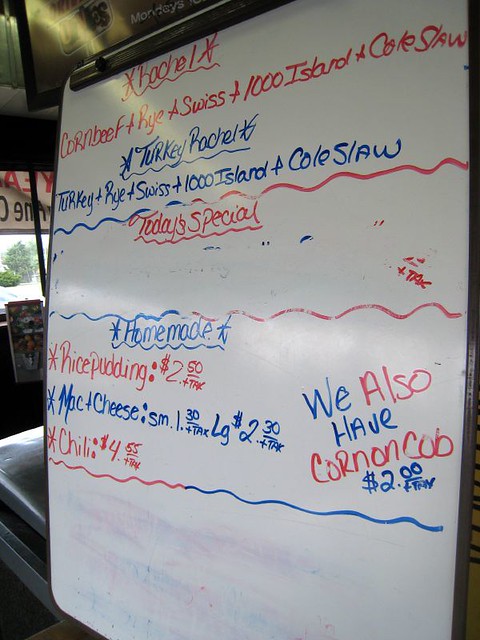 Mondays
*Rachel*
CORNbEEF + Rye + Swiss + 1000 Island + Cole Slaw
*Turkey Rachel*
Turkey + Rye + Swiss + 1000 Island + Cole Slaw
Today's Special
+TAX
*Homemade*
*Rice pudding: $2.50 +TAX
*Mac + Cheese: sm. 1.30 +TAX Lg $2.30 +TAX
*Chili: $4.55 +TAX
We Also
HAVE
CORN ON COb
$2.00 +TAX